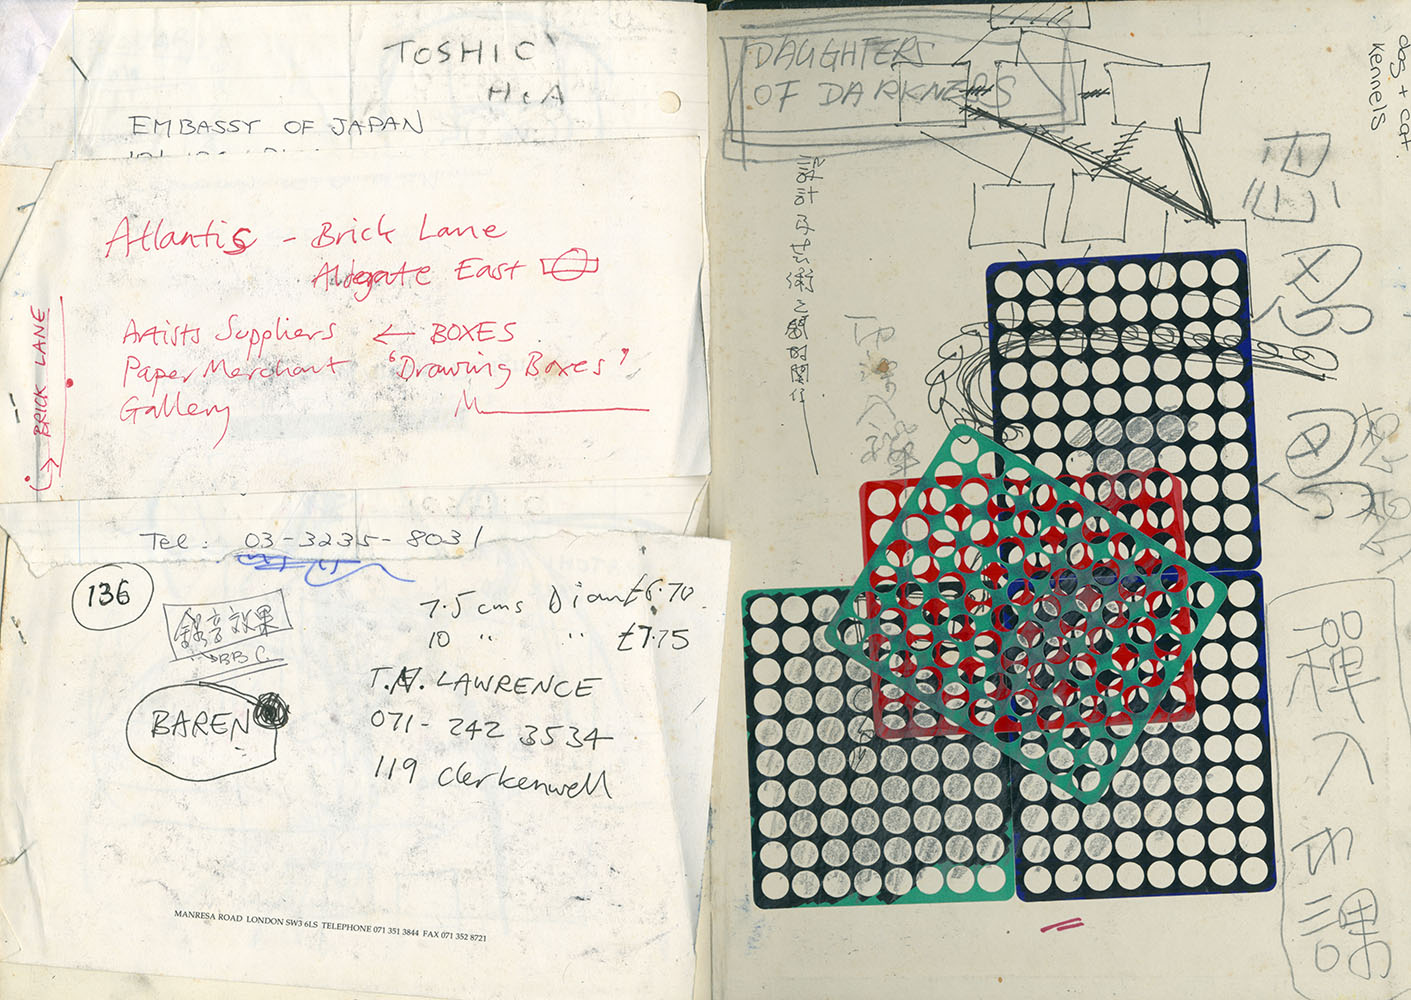 TOSHIC
H.A
EMBASSY OF JAPAN
Atlantis - Brick Lane
Aldgate East
Artists Suppliers ← BOXES
Paper Merchant 'Drawing Boxes'
Gallery
BRICK LANE
Tel: 03-3235-8031
136
錄音效果
→BBC
7.5 cms Diam £6.70
10 " " £7.75
BAREN
T.N. LAWRENCE
071-242 3534
119 Clerkenwell
MANRESA ROAD LONDON SW3 6LS TELEPHONE 071 351 3844 FAX 071 352 8721
DAUGHTERS
OF DARKNESS
dog + cat
kennels
設計及芸術之間的関係
忍
禪入功課